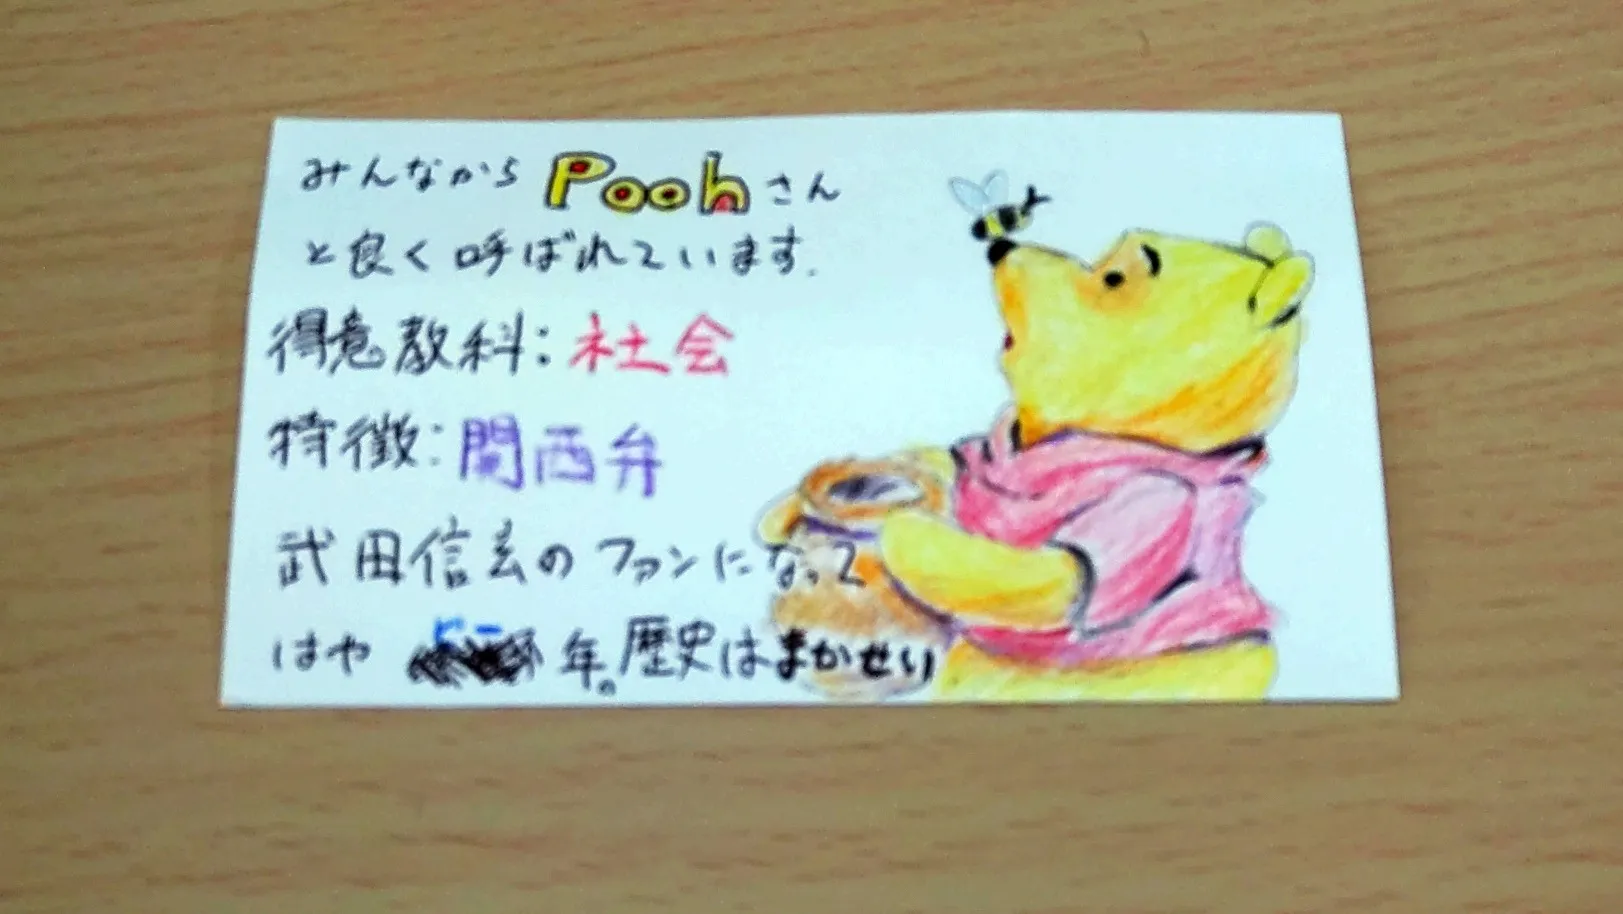 みんなから Pooh さん
と良く呼ばれています.
得意教科：社会
特徴：関西弁
武田信玄のファンになって
はや 年。歴史はまかせり